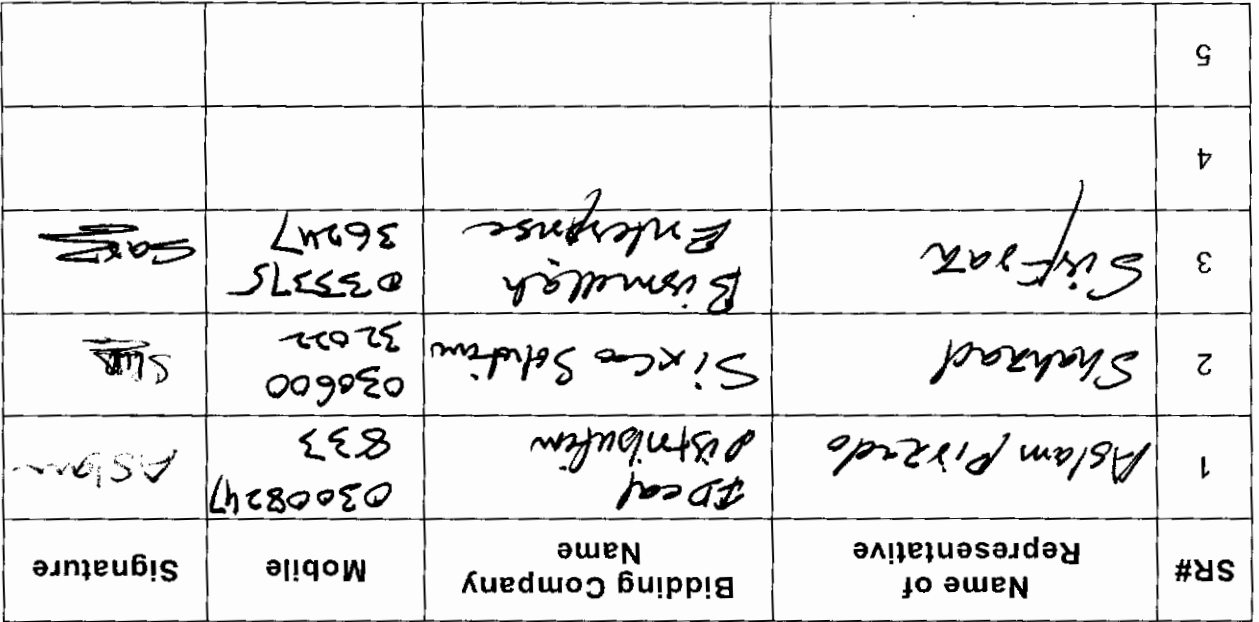 SR#
Name of
Representative
Bidding Company
Name
Mobile
Signature
1
Aslam Pirzado
IDeal
distribution
03008247
833
Aslam
2
Shahzad
Sixco Solution
030600
32022
3
Sirfraz
Bismillah
Enterprise
033375
36247
4
5